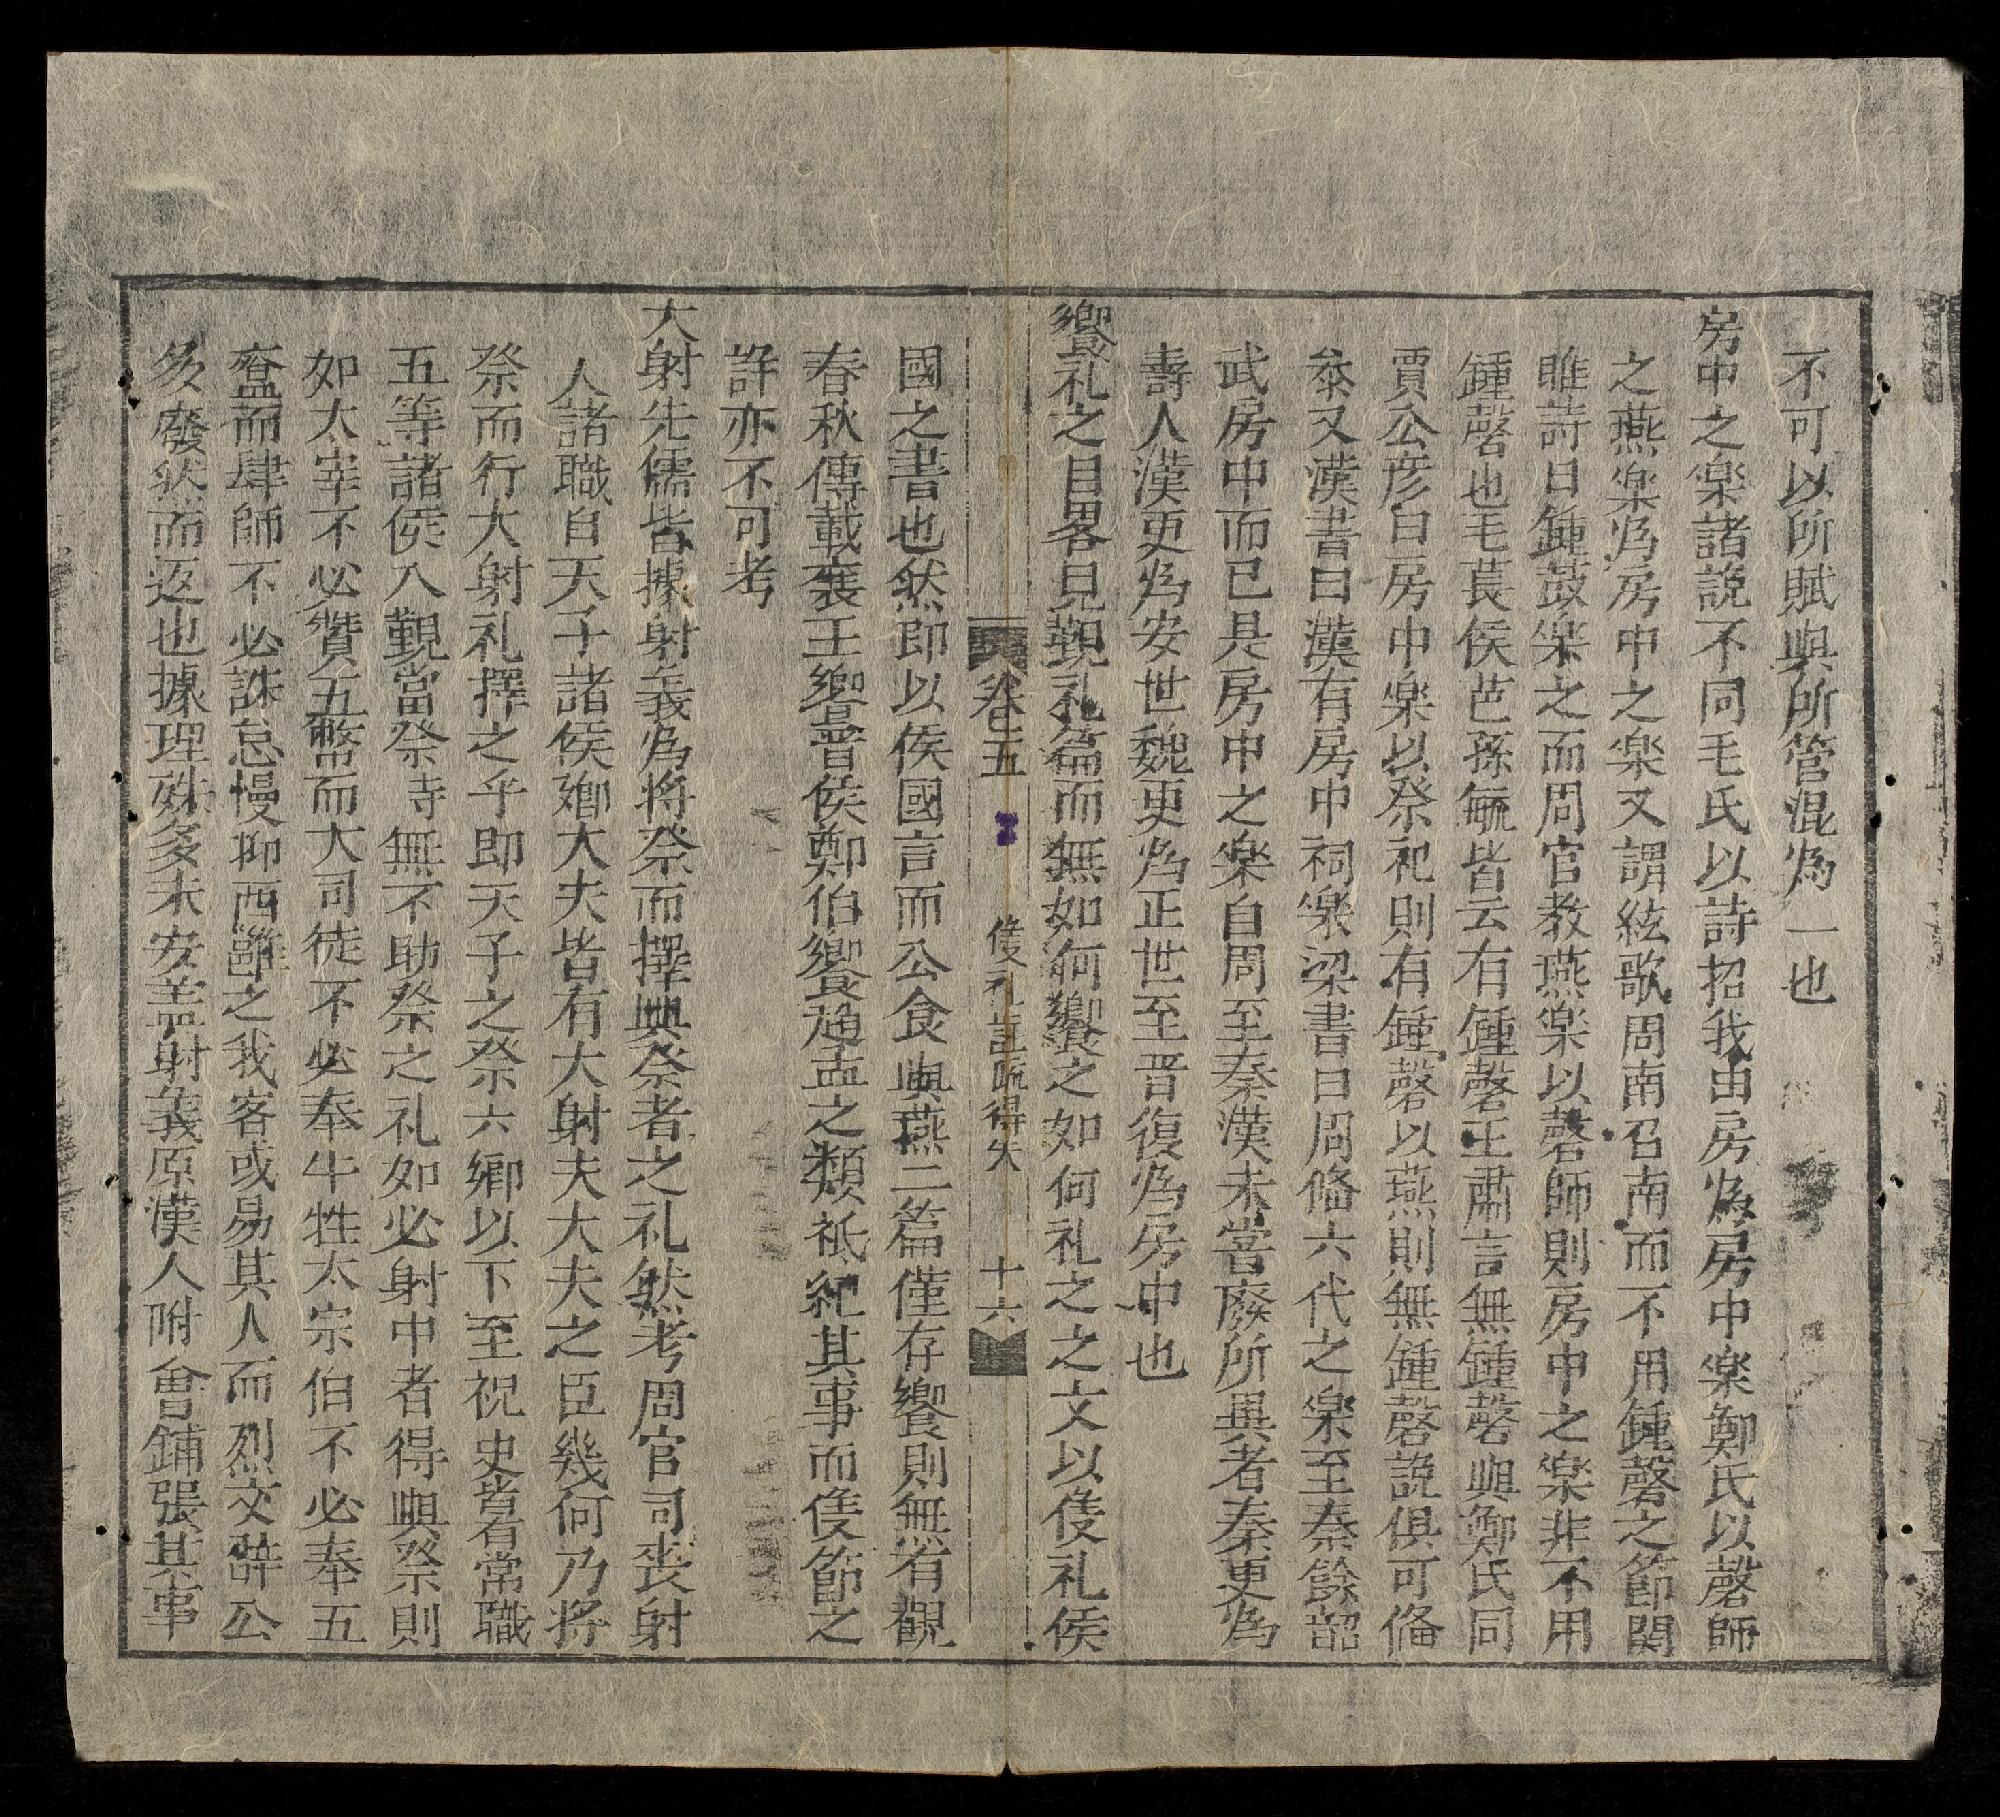 不可以所賦與所管混為一也
房中之楽諸説不同毛氏以詩招我由房為房中楽鄭氏以磬師
之燕楽為房中之楽又謂絃歌周南召南而不用鍾磬之節関
雎詩曰鍾鼓楽之而周官教燕楽以磬師則房中之楽非不用
鍾磬也毛萇侯芭孫毓皆云有鍾磬王肅言無鍾磬與鄭氏同
賈公彦曰房中楽以祭祀則有鍾磬以燕則無鍾磬説俱可俻
叅又漢書曰漢有房中祠楽梁書曰周俻六代之楽至秦餘韶
武房中而已是房中之楽自周至秦漢未甞廢所異者秦更為
壽人漢更為安世魏更為正世至晋復為房中也
饗礼之目畧見覲礼篇而無如何饗之如何礼之之文以𠊱礼侯
卷五 𠊱礼註疏得失 十六
國之書也然即以侯國言而公食與燕二篇僅存饗則無有觀
春秋傳載襄王饗晉侯鄭伯饗趙孟之類祗紀其事而𠊱節之
詳亦不可考
大射先儒皆據射義為將祭而擇與祭者之礼然考周官司裘射
人諸職自天子諸侯郷大夫皆有大射夫大夫之臣幾何乃將
祭而行大射礼擇之乎即天子之祭六卿以下至祝史皆有常職
五等諸侯入覲當祭時無不助祭之礼如必射中者得與祭則
如大宰不必贊玉幣而大司徒不必奉牛牲太宗伯不必奉玉
齍而肆師不必誅怠慢抑西雝之我客或易其人而烈文辟公
多廢然而返也據理殊多未安盖射義原漢人附會鋪張其事